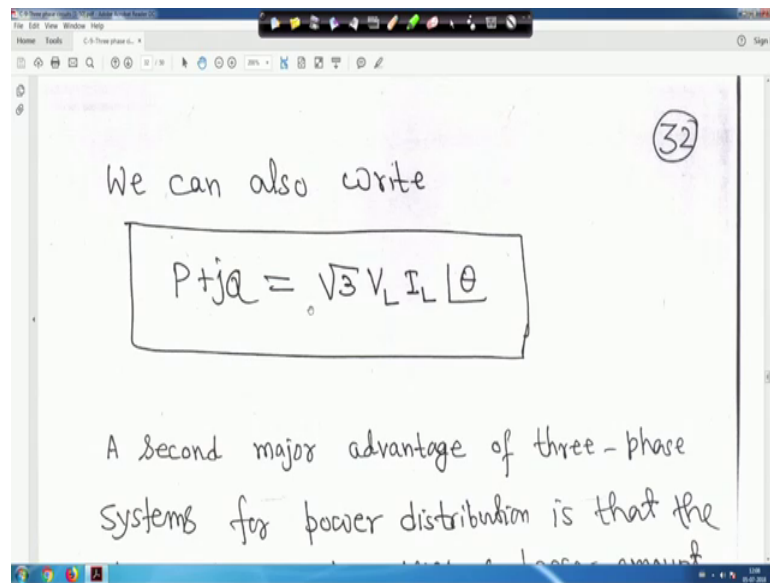 File Edit View Window Help
Home Tools
Sign
32
We can also write
P+jQ = √3 V_L I_L ∠θ
A second major advantage of three-phase
systems for power distribution is that the